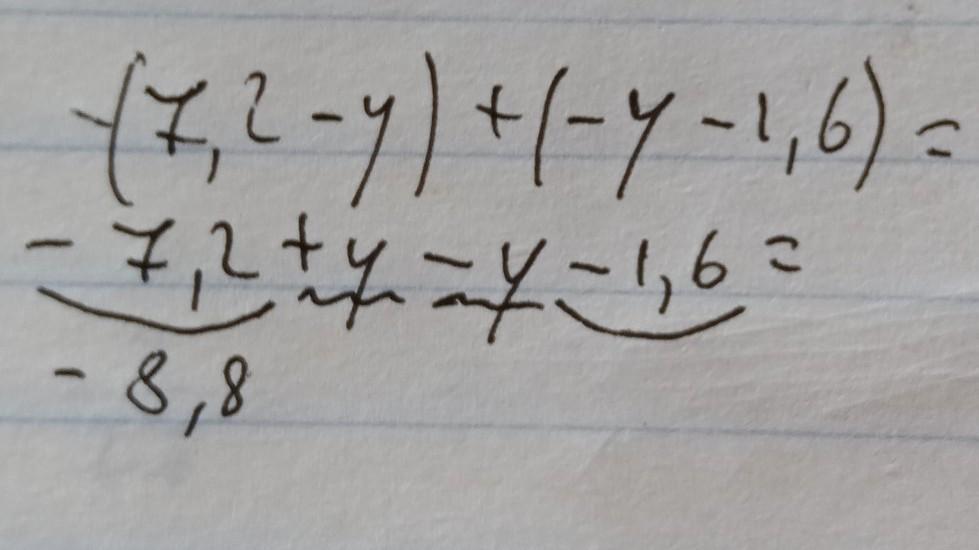 -(7,2-y)+(-y-1,6)=
-7,2+y-y-1,6=
-8,8